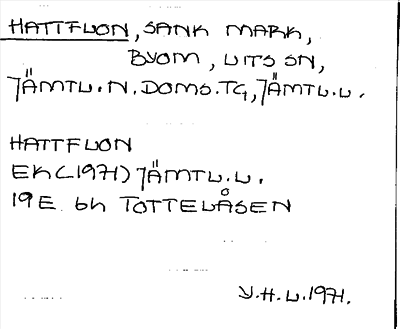 HATTFLON, SANK MARK,
BYOM, LITS SN,
JÄMTL. N. DOMS. TG, JÄMTL. L.
HATTFLON
EK (1971) JÄMTL. L.
19 E 6h TOTTELÅSEN
Y.H.L. 1971.